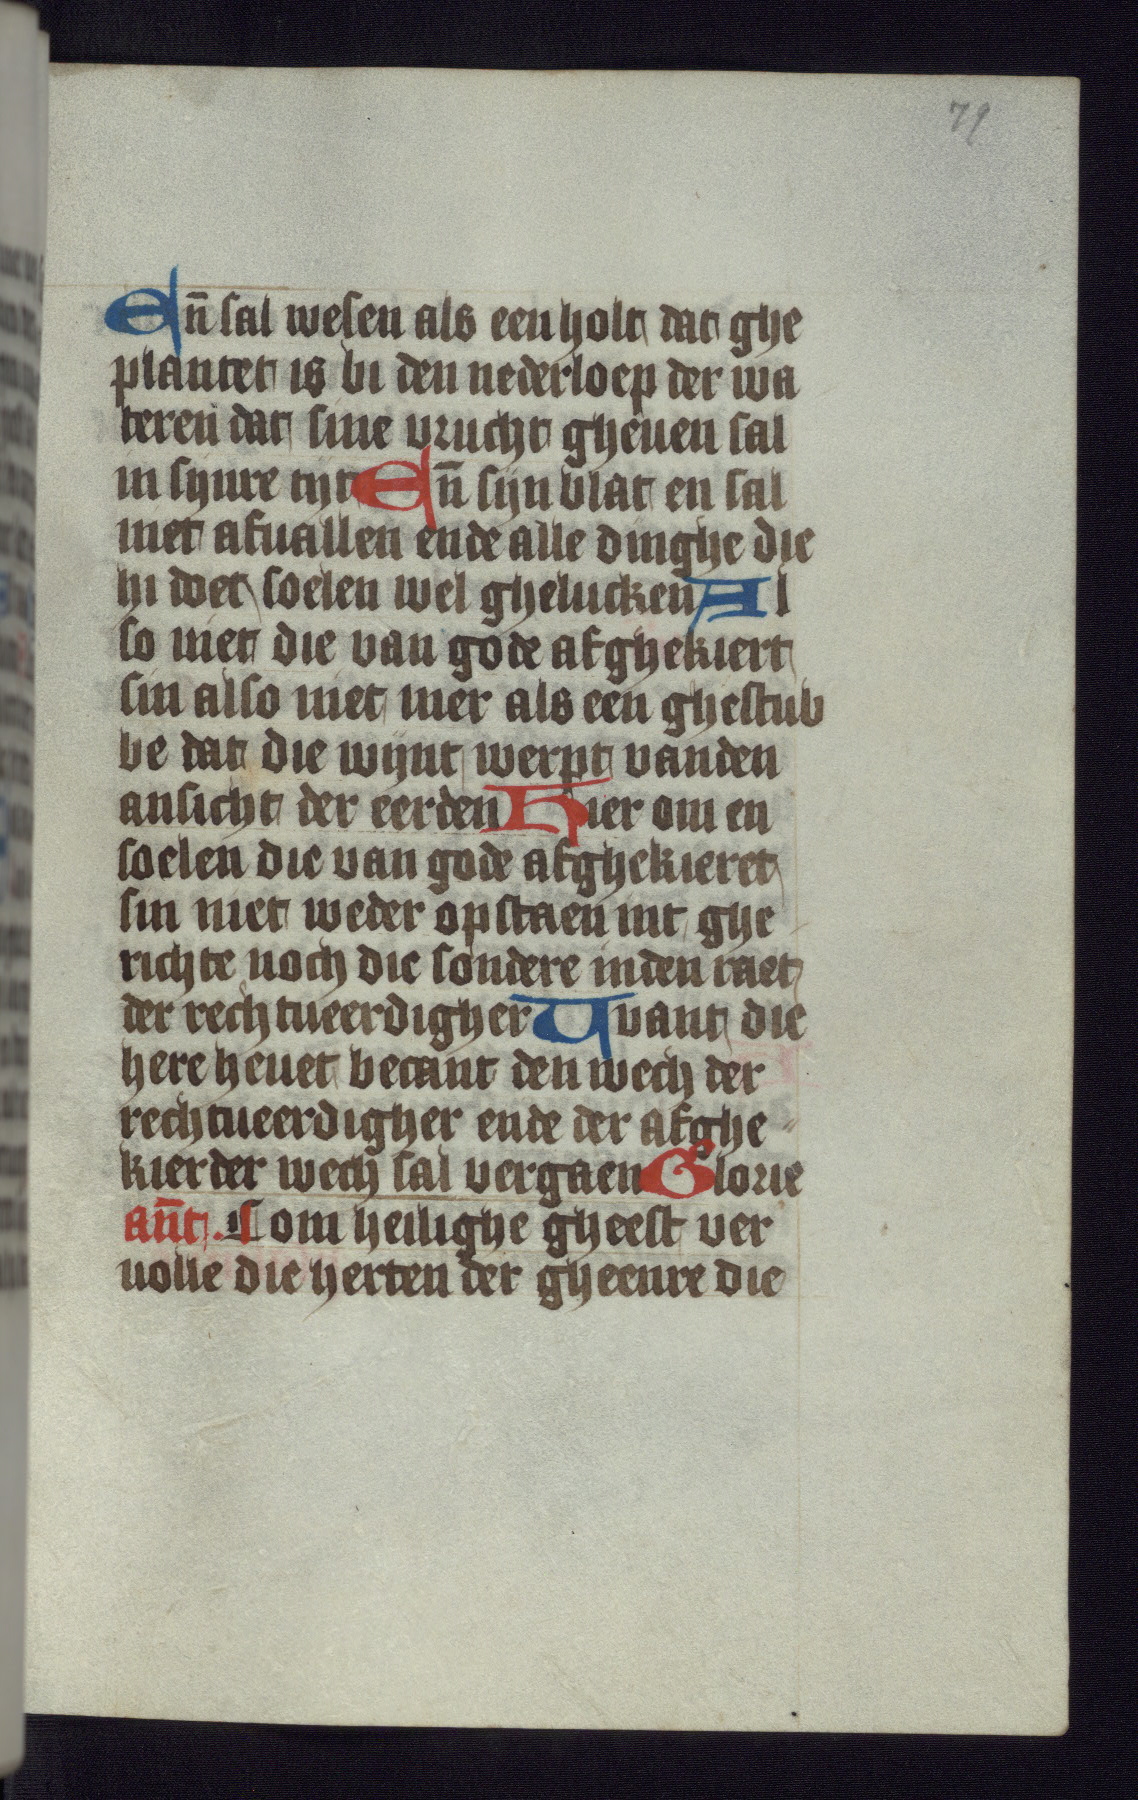 79
En̄ sal wesen als een holt dat ghe
plantet is bi den nederloep der wa
teren dat sine vrucht gheuen sal
in sijnre tijt En̄ sijn blat en sal
niet afuallen ende alle dinghe die
hi doet soelen wel ghelucken Al
so niet die van gode afghekiert
sin also niet mer als een ghestub
be dat die wijnt werpt vanden
ansicht der eerden Hier om en
soelen die van gode afghekieret
sin niet weder opstaen int ghe
richte noch die sondere inden raet
der rechtueerdigher Want die
here heuet becant den wech der
rechtueerdigher ende der afghe
kierder wech sal vergaen Glorie
an̄t. Com heilighe gheest ver
uolle die herten der gheenre die